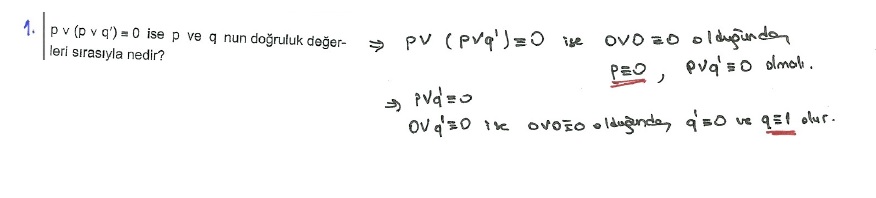 1. p ∨ (p ∨ q') ≡ 0 ise p ve q nun doğruluk değer-
leri sırasıyla nedir?
⇒ p∨ (p∨q') ≡ 0 ise 0∨0 ≡ 0 olduğundan,
p≡0 , p∨q' ≡ 0 olmalı.
⇒ p∨q' ≡ 0
0∨q' ≡ 0 ise 0∨0≡0 olduğundan, q' ≡ 0 ve q≡1 olur.